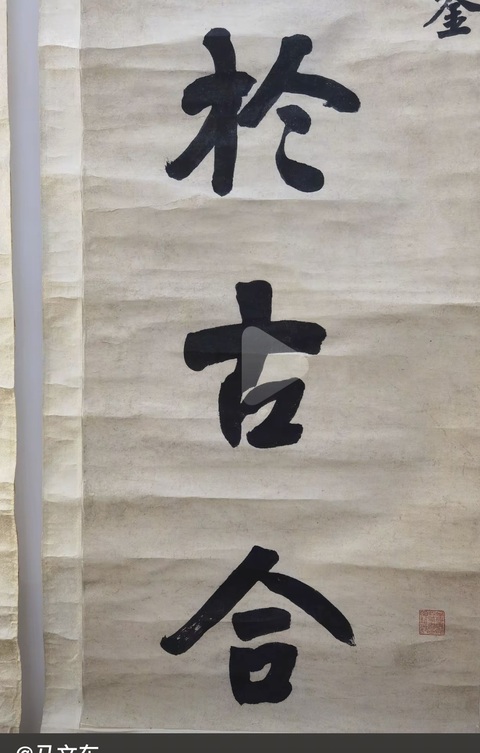 於
古
合
@马文东